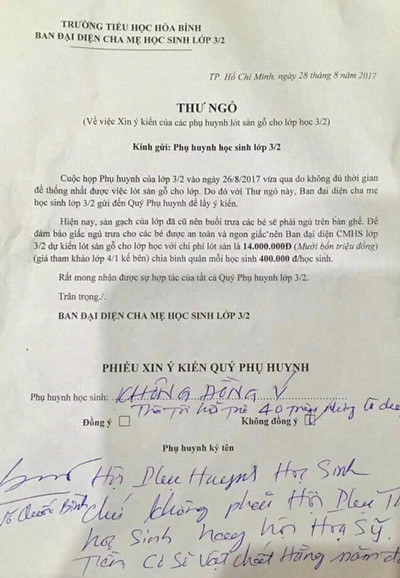 TRƯỜNG TIỂU HỌC HÒA BÌNH
BAN ĐẠI DIỆN CHA MẸ HỌC SINH LỚP 3/2
TP. Hồ Chí Minh, ngày 28 tháng 8 năm 2017
THƯ NGỎ
(Về việc Xin ý kiến của các phụ huynh lót sàn gỗ cho lớp học 3/2)
Kính gửi: Phụ huynh học sinh lớp 3/2
Cuộc họp Phụ huynh của lớp 3/2 vào ngày 26/8/2017 vừa qua do không đủ thời gian
để thống nhất được việc lót sàn gỗ cho lớp. Do đó với Thư ngỏ này, Ban đại diện cha mẹ
học sinh lớp 3/2 gửi đến Quý Phụ huynh để lấy ý kiến.
Hiện nay, sàn gạch của lớp đã cũ nên buổi trưa các bé sẽ phải ngủ trên bàn ghế. Để
đảm bảo giấc ngủ trưa cho các bé được an toàn và ngon giấc nên Ban đại diện CMHS lớp
3/2 dự kiến lót sàn gỗ cho lớp học với chi phí lót sàn là 14.000.000Đ (Mười bốn triệu đồng)
(giá tham khảo lớp 4/1 kế bên) chia bình quân mỗi học sinh 400.000 đ/học sinh.
Rất mong nhận được sự hợp tác của tất cả Quý Phụ huynh lớp 3/2.
Trân trọng./.
BAN ĐẠI DIỆN CHA MẸ HỌC SINH LỚP 3/2
PHIẾU XIN Ý KIẾN QUÝ PHỤ HUYNH
Phụ huynh học sinh: KHÔNG ĐỒNG Ý
Đồng ý Không đồng ý
Phụ huynh ký tên
Hội Phụ Huynh Học Sinh
Chứ không phải Hội Phụ
học sinh hay hội Hoạ Sỹ.
Tiền Cơ Sở Vật chất Hằng năm